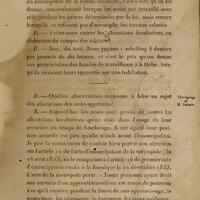 en récompense de la bonne conduite, c'est-à-dire qu'on les
donne, non-seulement lorsque les esclaves ont travaillé pen-
dant les heures déterminées par la loi, mais encore
lorsqu'ils se refusent pas d'accomplir les travaux salariés.
D. — Faites-vous entrer les allocations facultatives, en
déduction du compte des salaires?
R. — Non, du tout. Nous payons : 8 deniers
par journée de dix heures, et c'est le prix qu'on donne
aux propriétaires des bandes de travailleurs à la tâche, lors-
qu'ils envoient leurs apprentis sur une habitation.
D. — Quelles observations avez-vous à faire au sujet
des allocations des noirs-apprentis?
R. — Aujourd'hui les noirs sont privés de toutes les
allocations facultatives qu'on était dans l'usage de leur
accorder au temps de l'esclavage. A cet égard leur posi-
tion actuelle est pire qu'elle n'était avant l'émancipation.
Je prie la commission de vouloir bien porter son attention
sur l'article 11 de l'acte d'émancipation de la métropole (du
28 août 1833), et le comparer à l'article 16 du premier acte
d'émancipation rendu à la Jamaïque le 12 décembre 1833.
L'acte de la métropole porte : « Toute personne ayant
droit aux services d'un apprenti-travailleur sera tenue de
lui fournir, pendant la durée de son apprentissage, la
nourriture, les vêtements, le logement, les médicaments,
Témoignage
de
M.